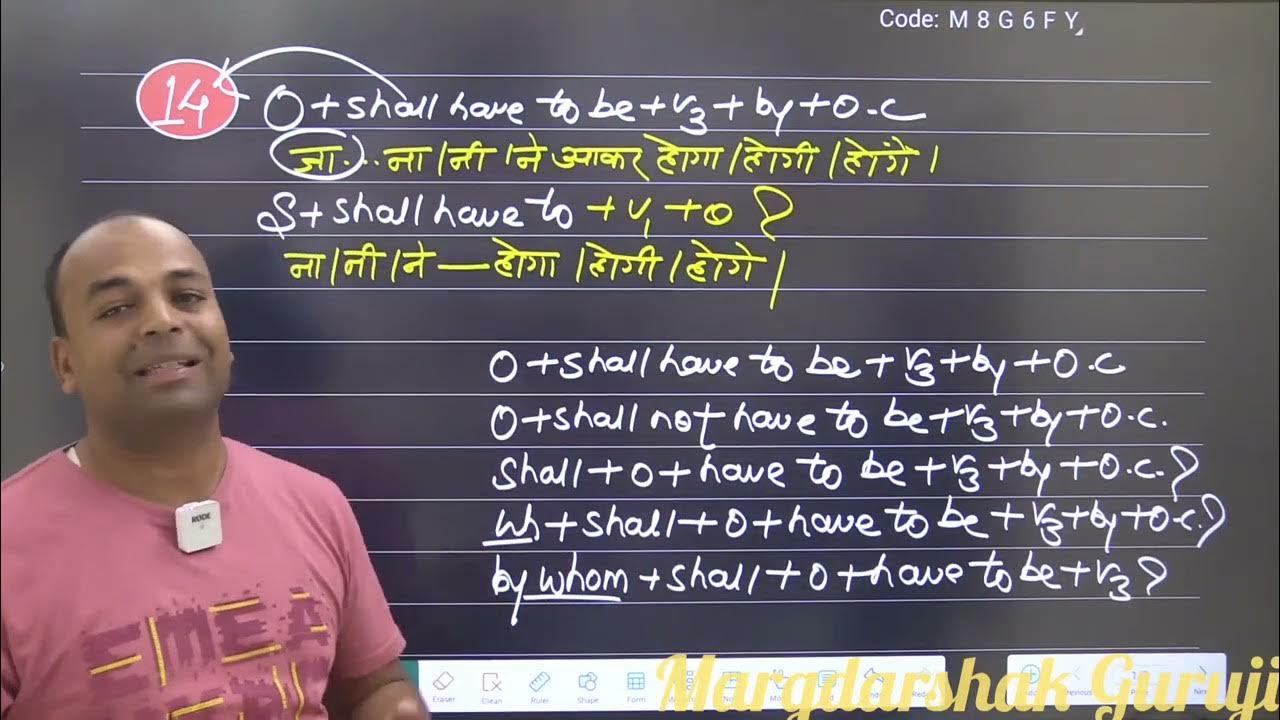 Code: M 8 G 6 F Y
14
O + shall have to be + V3 + by + O.C
जा... ना / नी / ने आकर होगा / होगी / होंगे।
S + shall have to + V1 + O ?
ना / नी / ने — होगा / होगी / होगे |
O + shall have to be + V3 + by + O.C
O + shall not have to be + V3 + by + O.C.
Shall + O + have to be + V3 + by + O.C. ?
Wh + shall + O + have to be + V3 + by + O.C. ?
by whom + shall + O + have to be + V3 ?
RODE
Eraser Clean Ruler Shape Form
Margdarshak Guruji